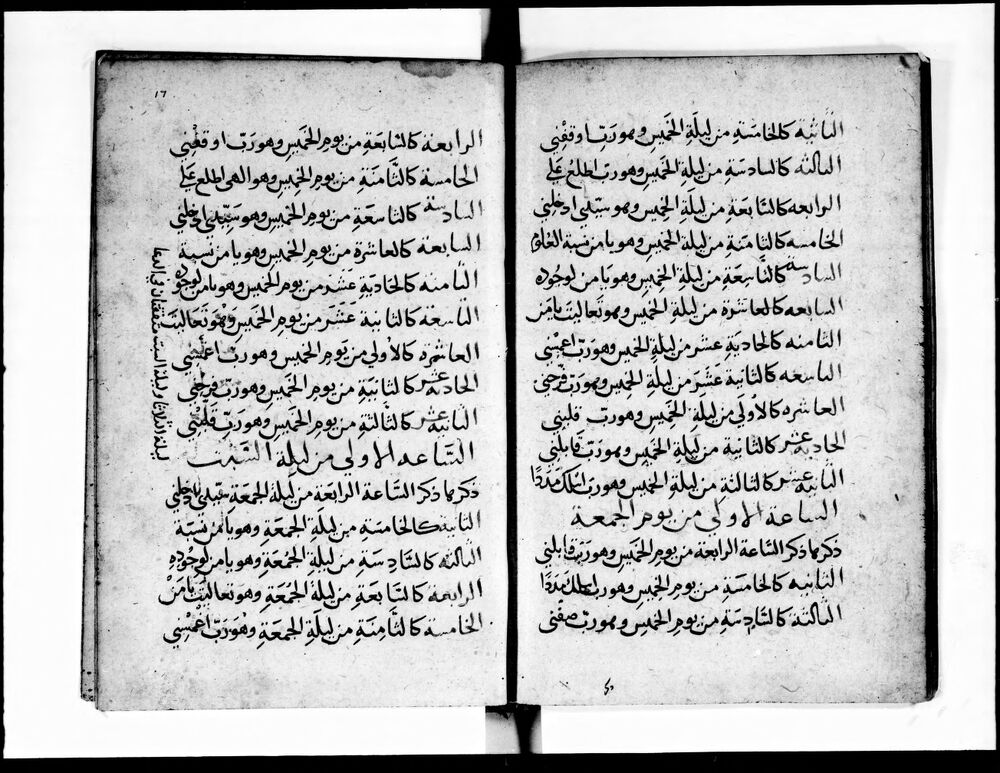 الثانية كالخامسة من ليلة الخميس وهو رب اوقفني
الثالثة كالسادسة من ليلة الخميس وهو رب اطلع علي
الرابعه كالسابعة من ليلة الخميس وهو سيدي ادخلني
الخامسه كالثامنة من ليلة الخميس وهو يا من نسبة العلوم
السادسة كالتاسعة من ليلة الخميس وهو يا من لوجوده
السابعه كالعاشرة من ليلة الخميس وهو تعاليت يا من
الثامنه كالحادية عشر من ليلة الخميس وهو رب اغمسني
التاسعه كالثانية عشر من ليلة الخميس وهو رب فرحني
العاشره كالاولى من ليلة الخميس وهو رب قلبني
الحادية عشر كالثانية من ليلة الخميس وهو رب قابلني
الثانية عشر كالثالثة من ليلة الخميس وهو رب اسئلك مددا
الساعة الاولي من يوم الجمعة
ذكرها ذكر الساعة الرابعة من يوم الخميس وهو رب قابلني
الثانيه كالخامسة من يوم الخميس وهو رب اسئلك مددا
الثالثة كالسادسة من يوم الخميس وهو رب صفني
١٦
الرابعة كالسابعة من يوم الخميس وهو رب اوقفني
الخامسة كالثامنة من يوم الخميس وهو الهي اطلع علي
السادسة كالتاسعة من يوم الخميس وهو سيدي ادخلني
السابعة كالعاشرة من يوم الخميس وهو يا من نسبة
الثامنه كالحادية عشر من يوم الخميس وهو يا من لوجوده
التاسعة كالثانية عشر من يوم الخميس وهو تعاليت
العاشرة كالاولي من يوم الخميس وهو رب اغمسني
الحادية عشر كالثانية من يوم الخميس وهو رب فرحني
الثانية عشر كالثالثة من يوم الخميس وهو رب قلبني
الساعه الاولي من ليلة السبت
ذكرها ذكر الساعة الرابعة من ليلة الجمعة سيدي ادخلني
الثانية كالخامسة من ليلة الجمعة وهو يا من نسبة
الثالثه كالسادسة من ليلة الجمعة وهو يا من لوجوده
الرابعة كالسابعة من ليلة الجمعة وهو تعاليت يا من
الخامسة كالثامنة من ليلة الجمعة وهو رب اغمسني
ليلة الثلاثا وليلة السبت متفقتان في الدعا